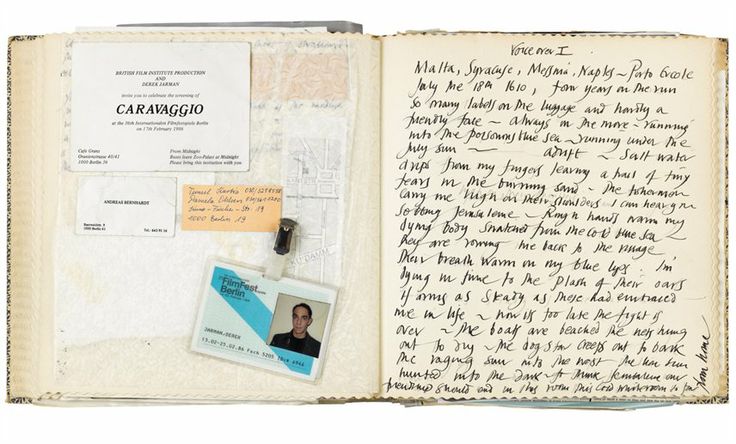 BRITISH FILM INSTITUTE PRODUCTION
AND
DEREK JARMAN
invite you to celebrate the screening of
CARAVAGGIO
at the 36th Internationalen Filmfestspiele Berlin
on 17th February 1986
Café Grenz
Oranienstrasse 40/41
1000 Berlin 36
From Midnight
Buses leave Zoo-Palast at Midnight
Please bring this invitation with you
ANDREAS BERNHARDT
1000 Berlin
Tel.
1000 Berlin 19
KU'DAMM
FilmFest
Berlin
JARMAN, DEREK
Voice over I.
Malta, Syracuse, Messina, Naples ~ Porto Ercole
July the 18th 1610, four years on the run
so many labels on the luggage and hardly a
friendly face ~ always on the move ~ running
into the poisonous blue sea ~ running under the
July sun ~ adrift ~ salt water
drips from my fingers leaving a trail of tiny
tears in the burning sand ~ the fishermen
carry me high on their shoulders I can hear you
sobbing Jerusaleme ~ Rough hands warm my
dying body snatched from the cold blue sea ~
they are rowing me back to the village
their breath warm on my blue lips I'm
dying in time to the plash of their oars
If arms as steady as these had embraced
me in life ~ now its too late the fight is
over ~ the boats are beached the nets hung
out to dry ~ the dog star creeps out to bark
the raging sun into the west the sun
hunted into the dark ~ I think Jerusaleme our
friendship should end in this room this cold white room so far
from home